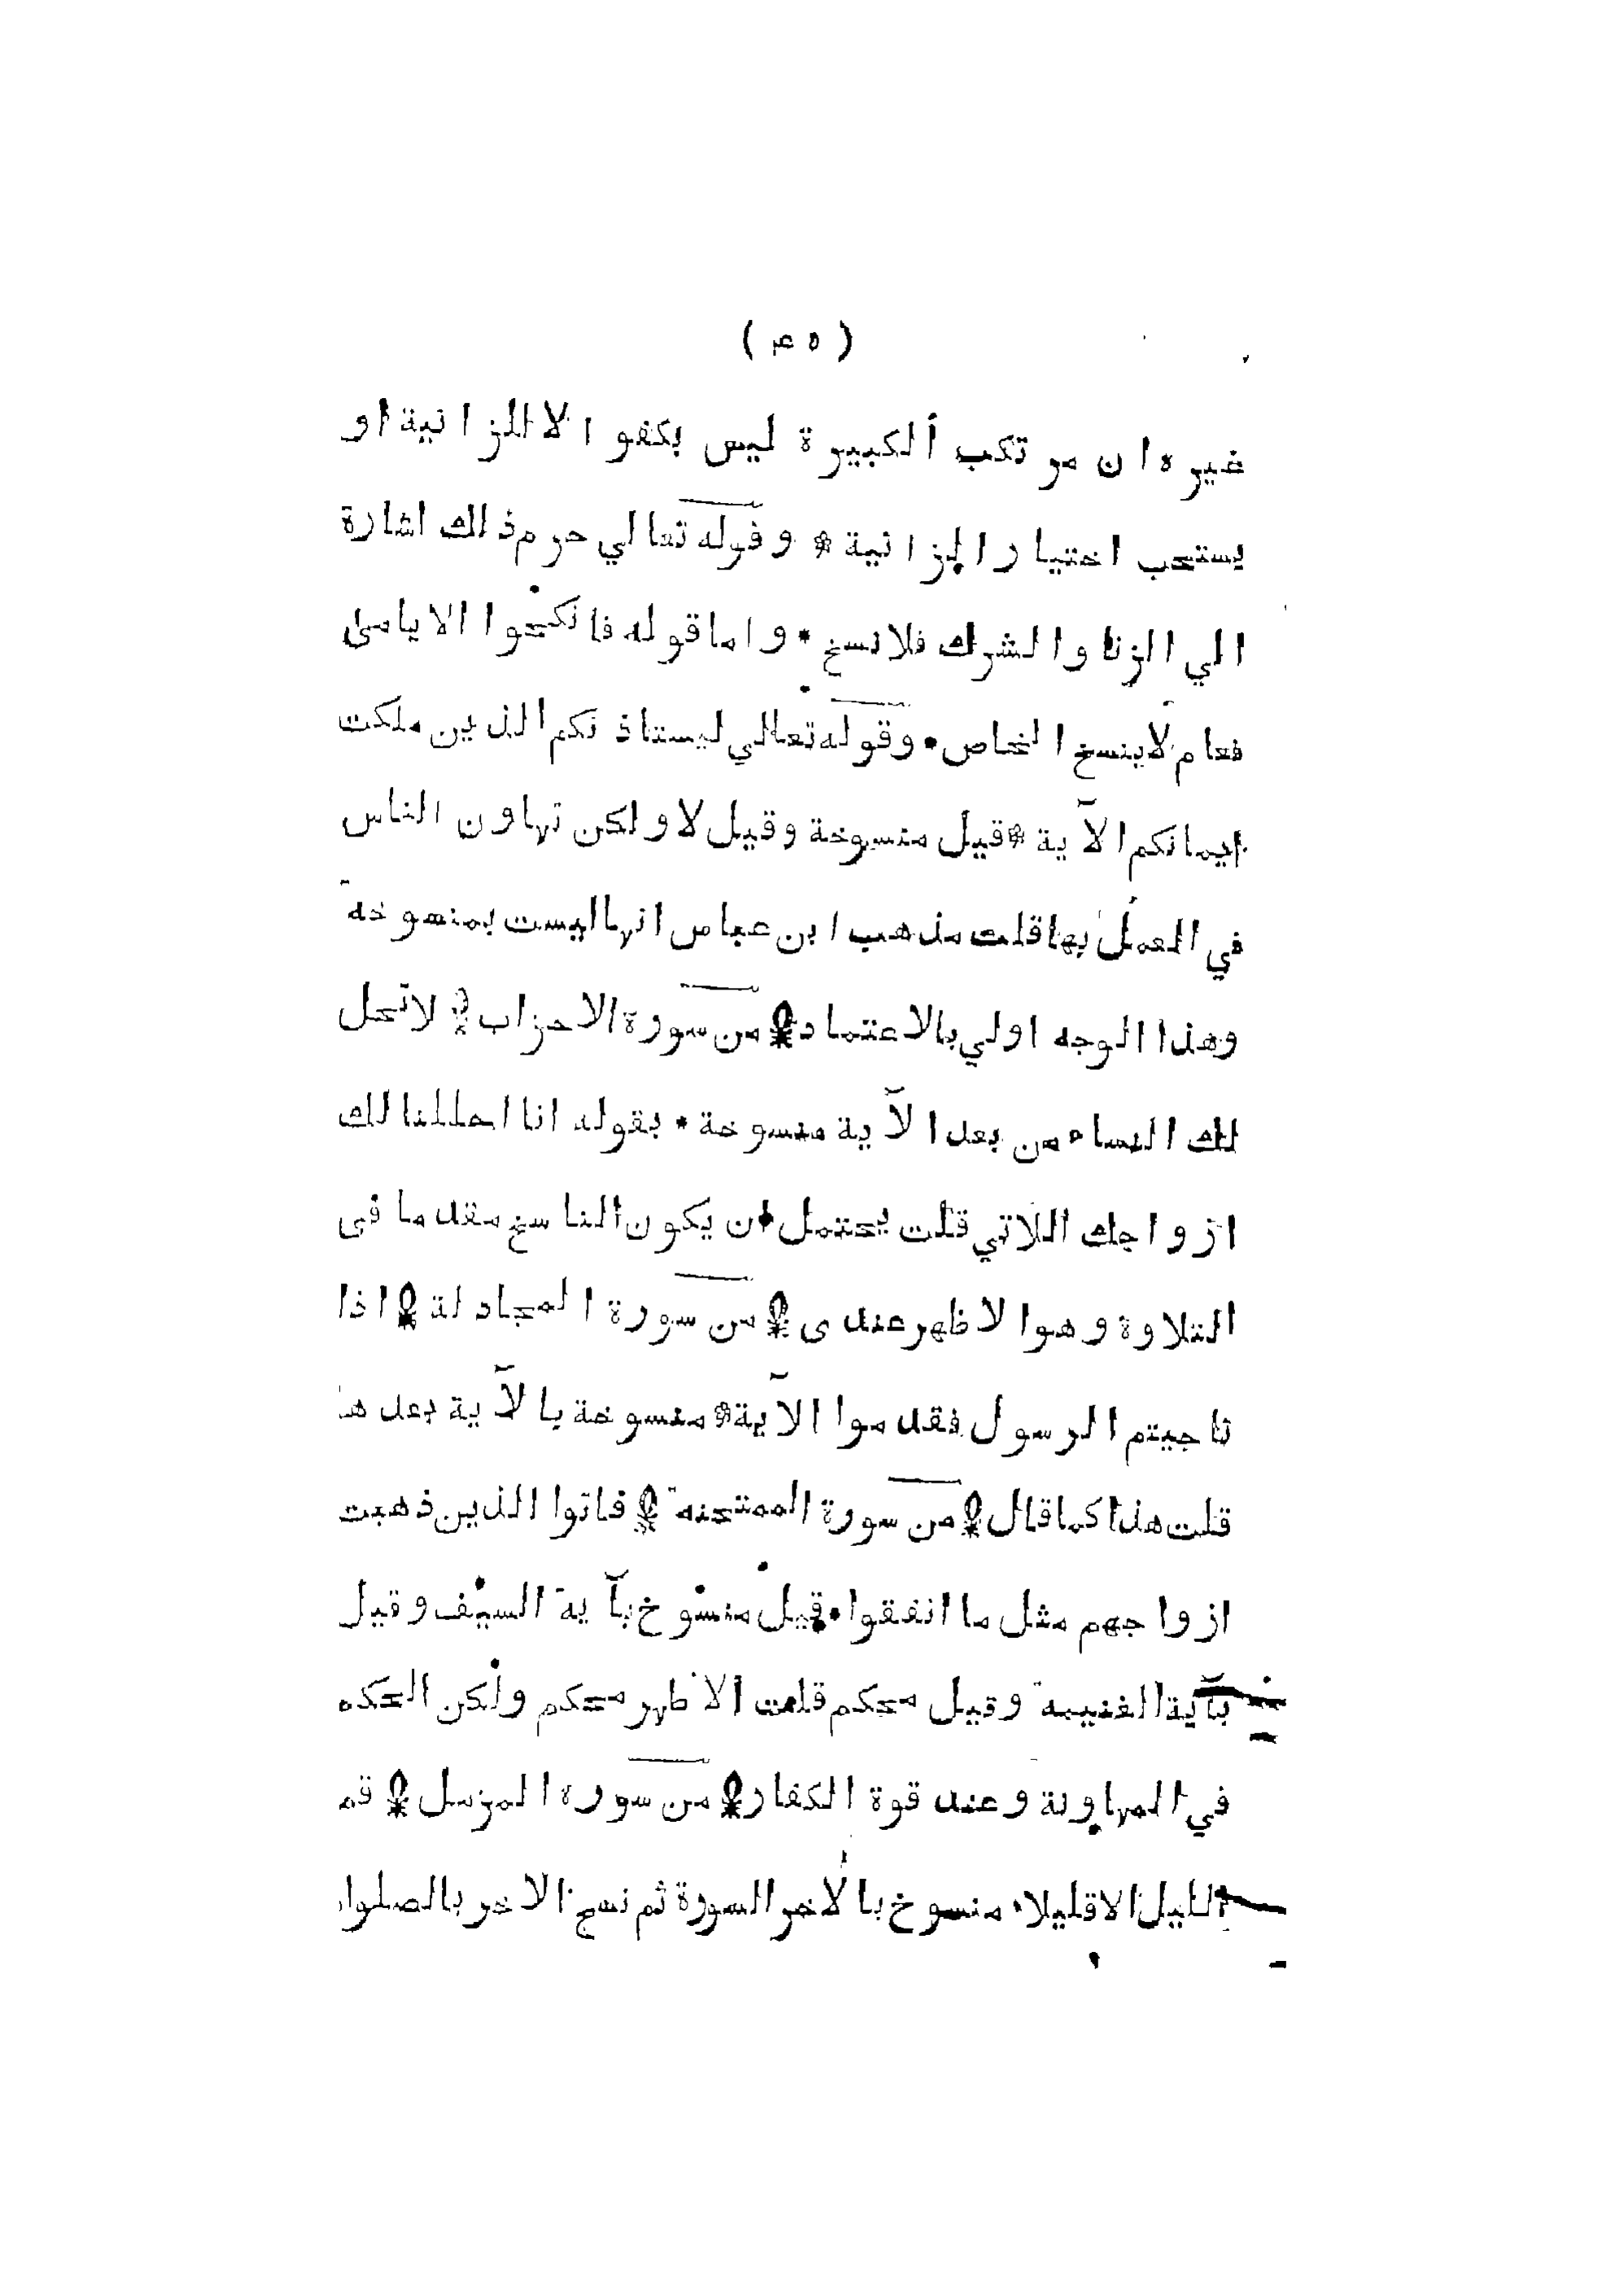 ( ۴۵ )
غيره ان مرتكب الكبيرة ليس بكفو الا للزانية او
يستحب اختيار الزانية * وقوله تعالي حرم ذلك اشارة
الي الزنا والشرك فلا نسخ * واما قوله فانكحوا الايامى
فعام لا ينسخ الخاص * وقوله تعالي ليستاذنكم الذين ملكت
ايمانكم الآية * قيل منسوخة وقيل لا ولكن تهاون الناس
في العمل بها قلت مذهب ابن عباس انها ليست بمنسوخة
وهذا الوجه اولي بالاعتماد * من سورة الاحزاب * لا تحل
لك النساء من بعد الآية منسوخة * بقوله انا احللنا لك
ازواجك اللاتي قلت يحتمل ان يكون الناسخ مقدما فى
التلاوة وهو الاظهر عندى * من سورة المجادلة * اذا
ناجيتم الرسول فقدموا الآية * منسوخة بالآية بعدها
قلت هذا كما قال * من سورة الممتحنة * فاتوا الذين ذهبت
ازواجهم مثل ما انفقوا * قيل منسوخ بآية السيف وقيل
بآية الغنيمة وقيل محكم قلت الاظهر محكم ولكن الحكم
في المهاونة وعند قوة الكفار * من سورة المزمل * قم
الليل الا قليلا * منسوخ بالاخر السورة ثم نسخ الاخر بالصلوات